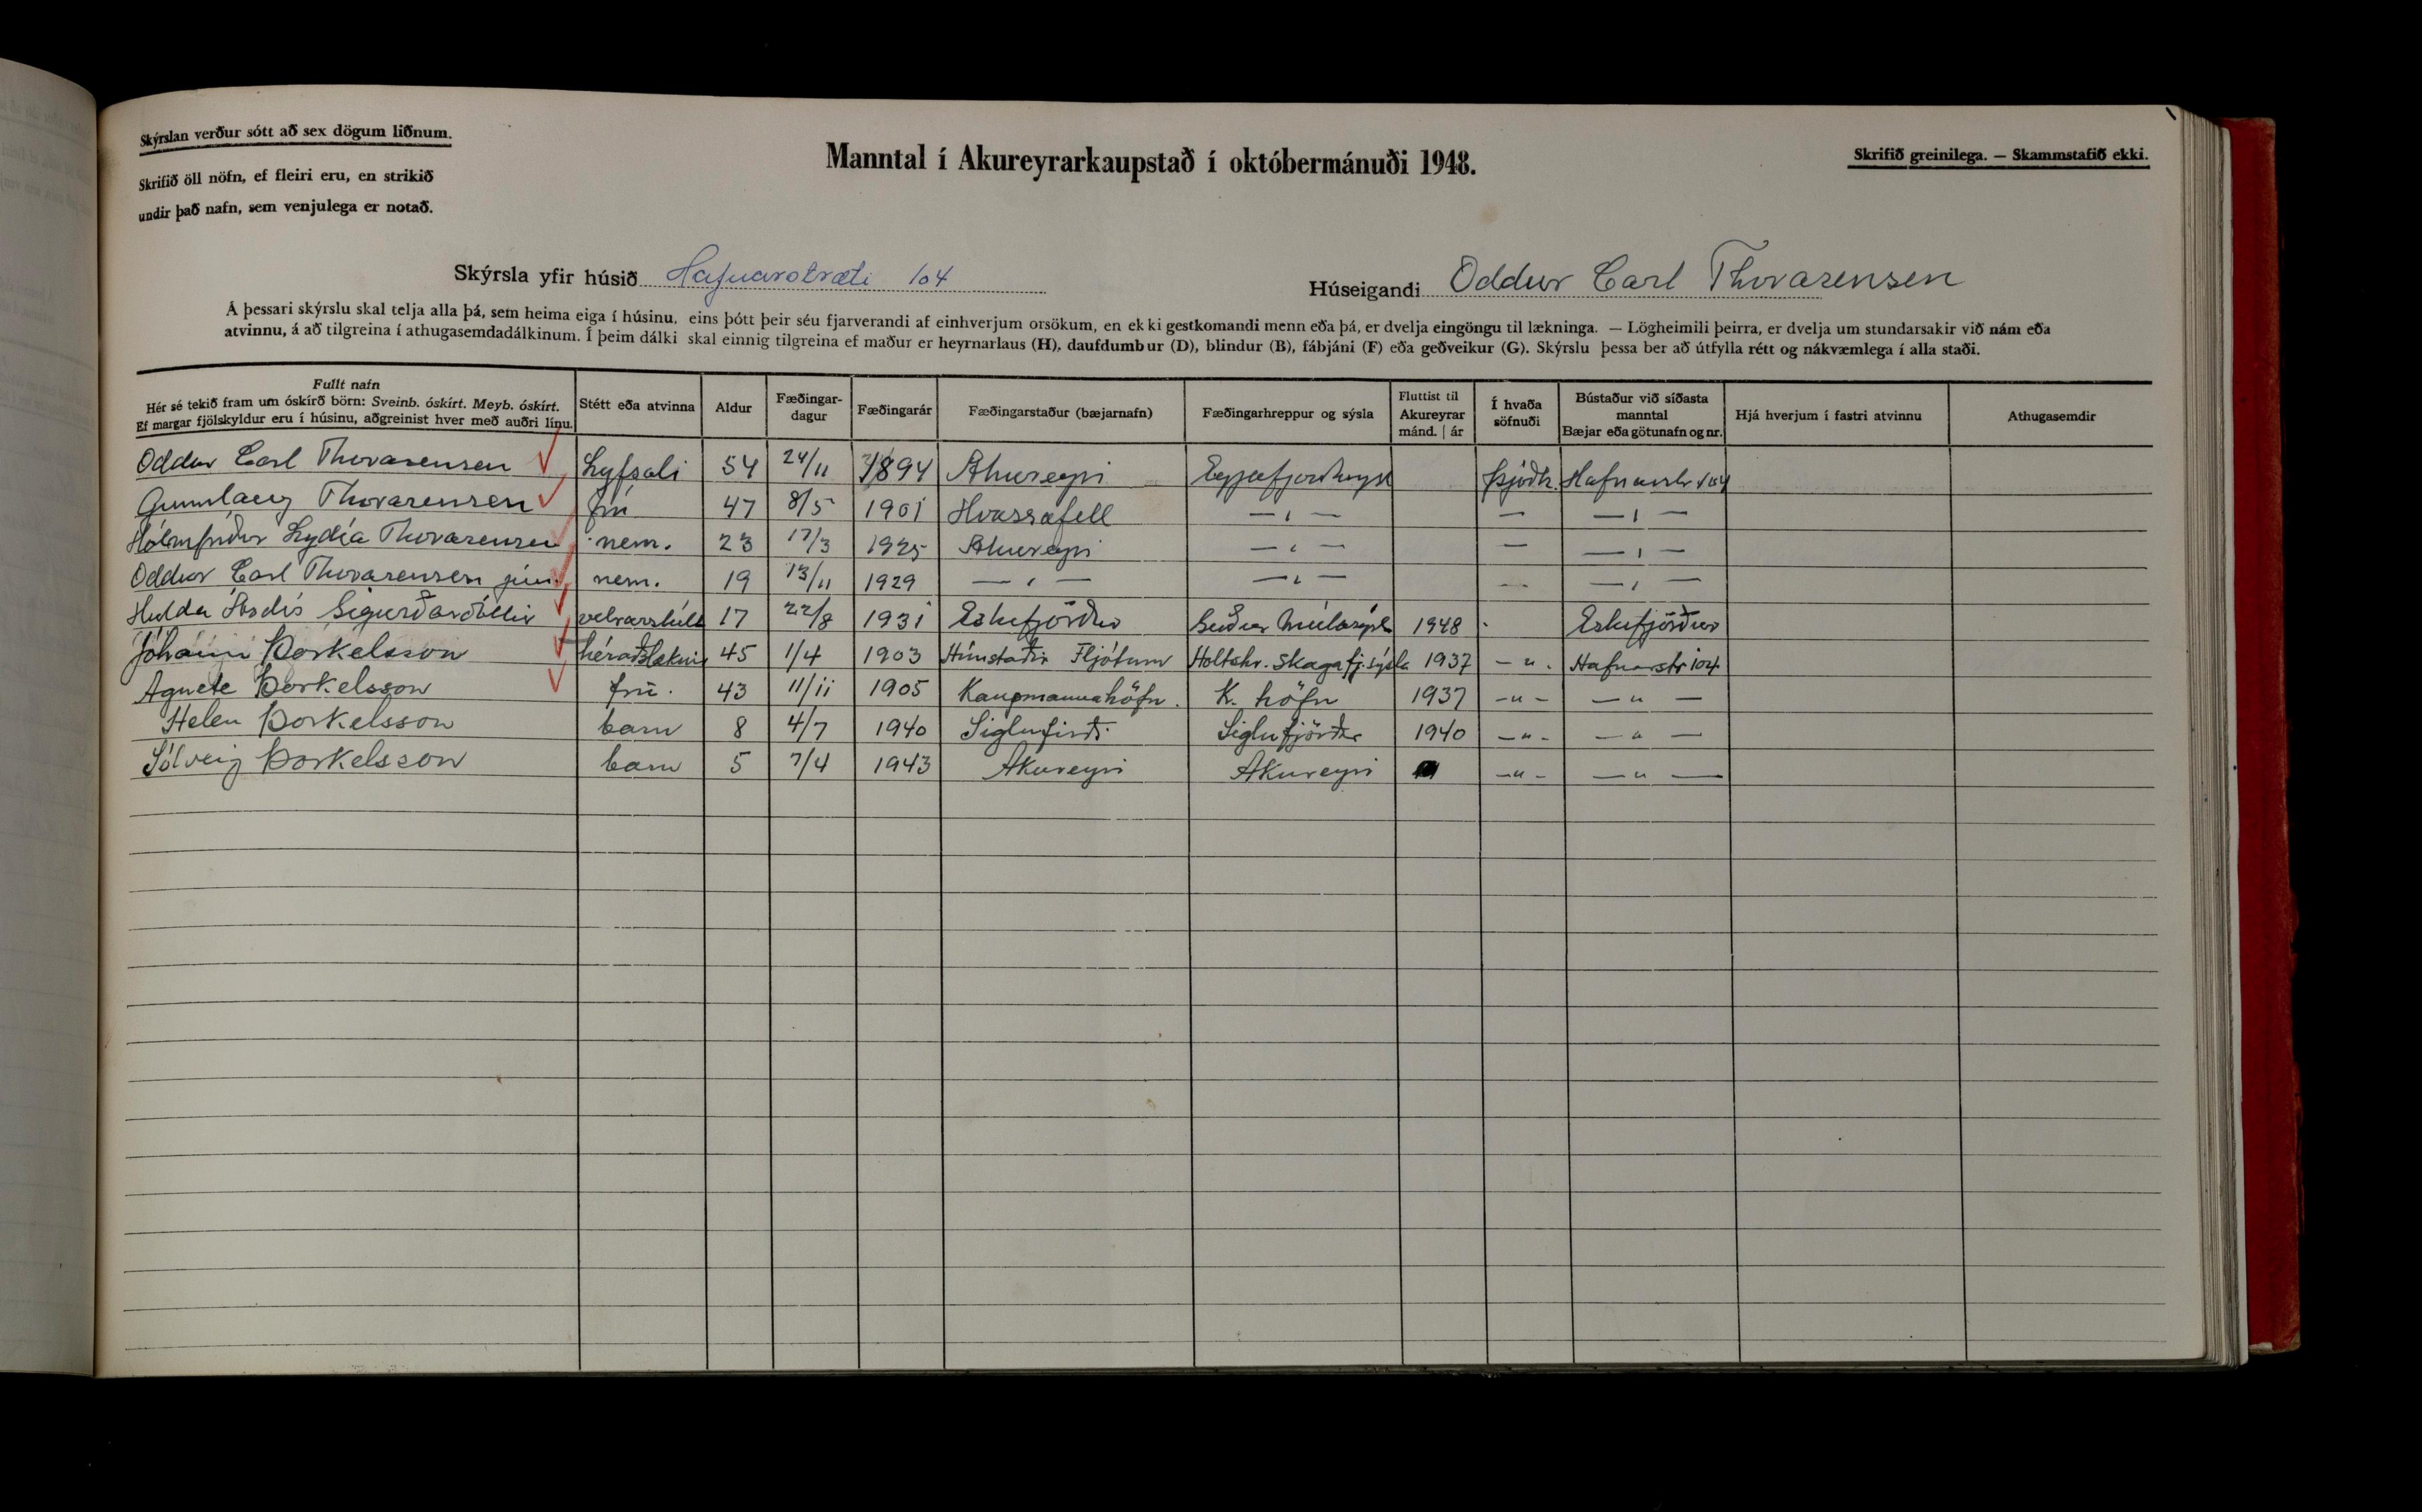 Skýrslan verður sótt að sex dögum liðnum.
Skrifið öll nöfn, ef fleiri eru, en strikið
undir það nafn, sem venjulega er notað.
Manntal í Akureyrarkaupstað í októbermánuði 1948.
Skrifið greinilega. — Skammstafið ekki.
Skýrsla yfir húsið Hafnarstræti 104
Húseigandi Oddur Carl Thorarensen
Á þessari skýrslu skal telja alla þá, sem heima eiga í húsinu, eins þótt þeir séu fjarverandi af einhverjum orsökum, en ekki gestkomandi menn eða þá, er dvelja eingöngu til lækninga. — Lögheimili þeirra, er dvelja um stundarsakir við nám eða
atvinnu, á að tilgreina í athugasemdadálkinum. Í þeim dálki skal einnig tilgreina ef maður er heyrnarlaus (H), daufdumbur (D), blindur (B), fábjáni (F) eða geðveikur (G). Skýrslu þessa ber að útfylla rétt og nákvæmlega í alla staði.
Fullt nafn
Hér sé tekið fram um óskírð börn: Sveinb. óskírt. Meyb. óskírt.
Ef margar fjölskyldur eru í húsinu, aðgreinist hver með auðri línu.
Stétt eða atvinna
Aldur
Fæðingar-
dagur
Fæðingarár
Fæðingarstaður (bæjarnafn)
Fæðingarhreppur og sýsla
Fluttist til
Akureyrar
mánd. | ár
Í hvaða
söfnuði
Bústaður við síðasta
manntal
Bæjar eða götunafn og nr.
Hjá hverjum í fastri atvinnu
Athugasemdir
Oddur Carl Thorarensen Lyfsali 54 24/11 1894 Akureyri Þjóðk. Hafnarstr 104
Gunnlaug Thorarensen frú 47 8/5 1901 Hvassafell — " — — — " —
Hólmfríður Lydía Thorarensen nem. 23 17/3 1925 Akureyri — " — — — " —
Oddur Carl Thorarensen jún. nem. 19 13/11 1929 — " — — " — — — " —
Hulda Ásdís Sigurðardóttir 17 22/8 1931 Eskifjörður Suður Múlasýsla 1948 Eskifjörður
Jóhann Þorkelsson héraðslæknir 45 1/4 1903 Fljótum Holtshr. Skagafj.sýsla 1937 — " — Hafnarstr 104
Agnete Þorkelsson frú. 43 11/11 1905 Kaupmannahöfn. K. höfn 1937 — " — — " —
Helen Þorkelsson barn 8 4/7 1940 Siglufirði Siglufjörður 1940 — " — — " —
Sólveig Þorkelsson barn 5 7/4 1943 Akureyri Akureyri — " — — " —